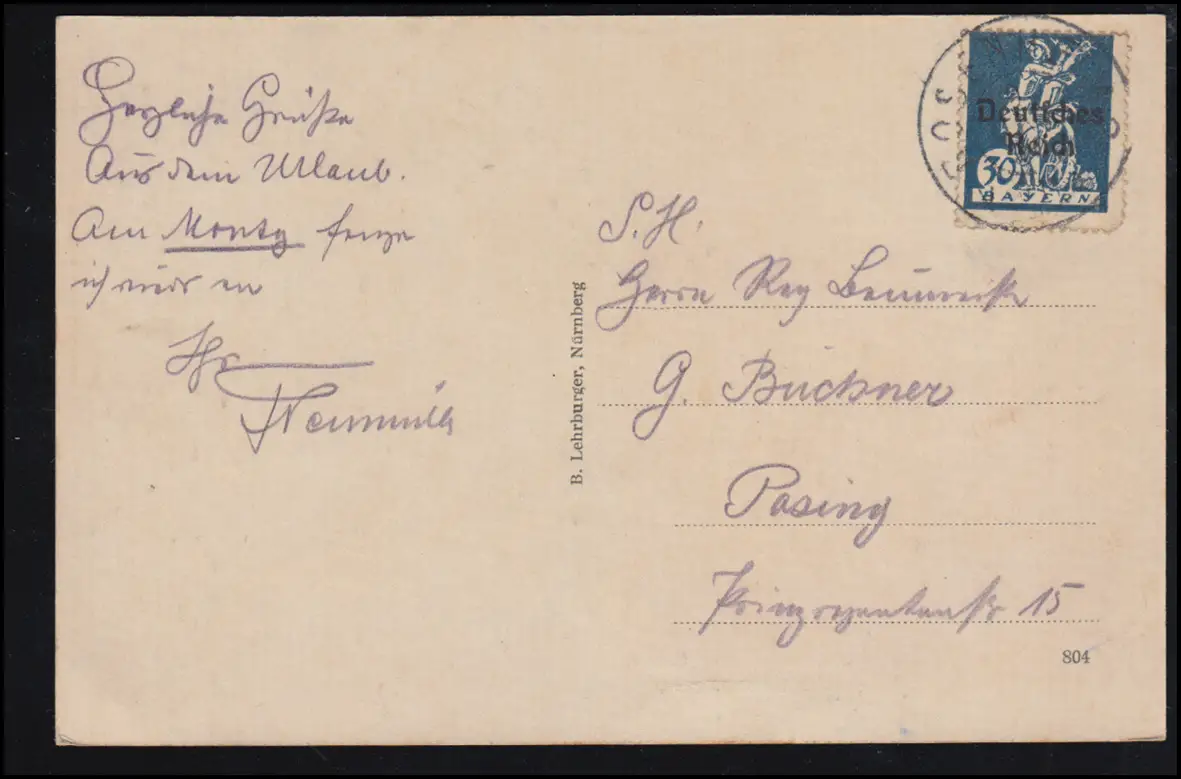 Herzliche Grüße
Aus dem Urlaub.
Am Montag fange
ich wieder an
Ihr
B. Lehrburger, Nürnberg
Deutsches
Reich
30
BAYERN
S. H.
Herrn Reg
G. Büchner
Pasing
Prinzregentenstr 15
804